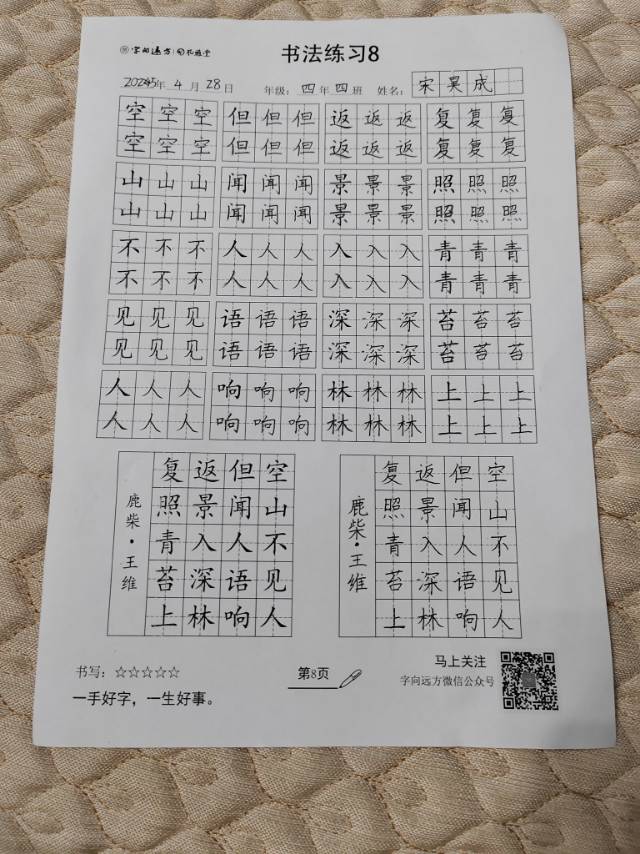 书法练习8
2025年 4 月 28日 年级：四 年 四 班 姓名：宋昊成
空空空 但但但 返返返 复复复
空空空 但但但 返返返 复复复
山山山 闻闻闻 景景景 照照照
山山山 闻闻闻 景景景 照照照
不不不 人人人 入入入 青青青
不不不 人人人 入入入 青青青
见见见 语语语 深深深 苔苔苔
见见见 语语语 深深深 苔苔苔
人人人 响响响 林林林 上上上
人人人 响响响 林林林 上上上
鹿柴·王维
空山不见人
但闻人语响
返景入深林
复照青苔上
鹿柴·王维
空山不见人
但闻人语响
返景入深林
复照青苔上
书写：☆☆☆☆☆
一手好字，一生好事。
第8页
马上关注
字向远方微信公众号